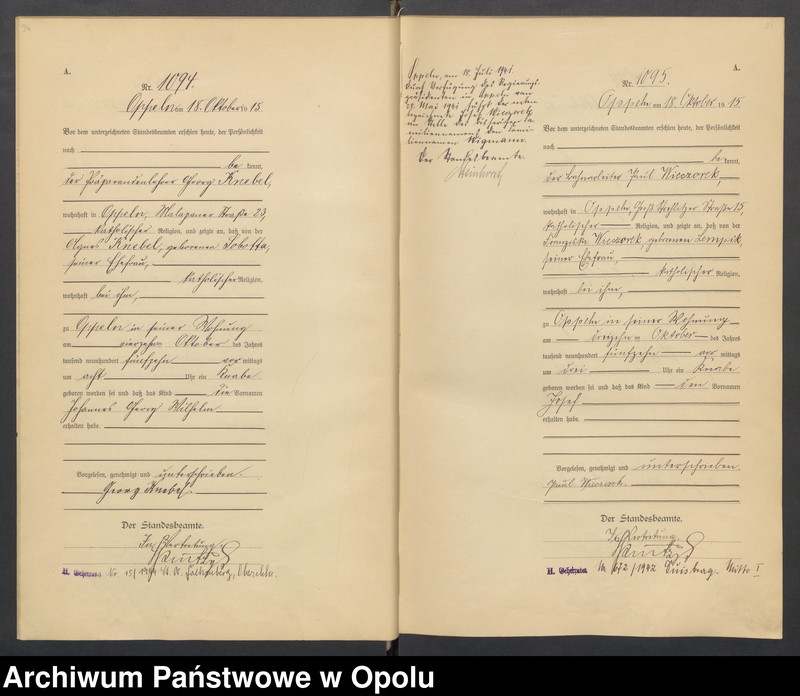 A.
Nr. 1094.
Oppeln am 18. Oktober 1915.
Vor dem unterzeichneten Standesbeamten erschien heute, der Persönlichkeit
nach
be kannt,
der Präparandenlehrer Georg Knebel,
wohnhaft in Oppeln, Malapaner Straße 23,
katholischer Religion, und zeigte an, daß von der
Agnes Knebel, geborenen Sobotta,
seiner Ehefrau,
katholischer Religion,
wohnhaft bei ihm,
zu Oppeln in seiner Wohnung
am vierzehn Oktober des Jahres
tausend neunhundert fünfzehn vor mittags
um acht Uhr ein Knabe
geboren worden sei und daß das Kind die Vornamen
Johannes Georg Wilhelm
erhalten habe.
Vorgelesen, genehmigt und unterschrieben.
Georg Knebel.
Der Standesbeamte.
In Vertretung.
H. Geheiratet Nr 15/1944 St. A. Falkenberg, Oberschles.
Oppeln, am 18. Juli 1941.
Durch Verfügung des Regierungs-
präsidenten in Oppeln vom
Mai 1941 führt der neben
bezeichnete Josef Wieczorek
an Stelle des bisherigen Fa-
miliennamens den Fami-
liennamen Wigmann.
Der Standesbeamte.
A.
Nr. 1095.
Oppeln am 18. Oktober 1915
Vor dem unterzeichneten Standesbeamten erschien heute, der Persönlichkeit
nach
be kannt,
der Bahnarbeiter Paul Wieczorek,
wohnhaft in Oppeln, Groß Strehlitzer Straße 15,
katholischer Religion, und zeigte an, daß von der
Franziska Wieczorek, geborenen Lempik,
seiner Ehefrau,
katholischer Religion,
wohnhaft bei ihm,
zu Oppeln in seiner Wohnung
am dreizehn Oktober des Jahres
tausend neunhundert fünfzehn vor mittags
um drei Uhr ein Knabe
geboren worden sei und daß das Kind den Vornamen
Josef
erhalten habe.
Vorgelesen, genehmigt und unterschrieben.
Paul Wieczorek.
Der Standesbeamte.
In Vertretung.
H. Geheiratet Nr 672/1942 Duisburg-Mitte I
Archiwum Państwowe w Opolu